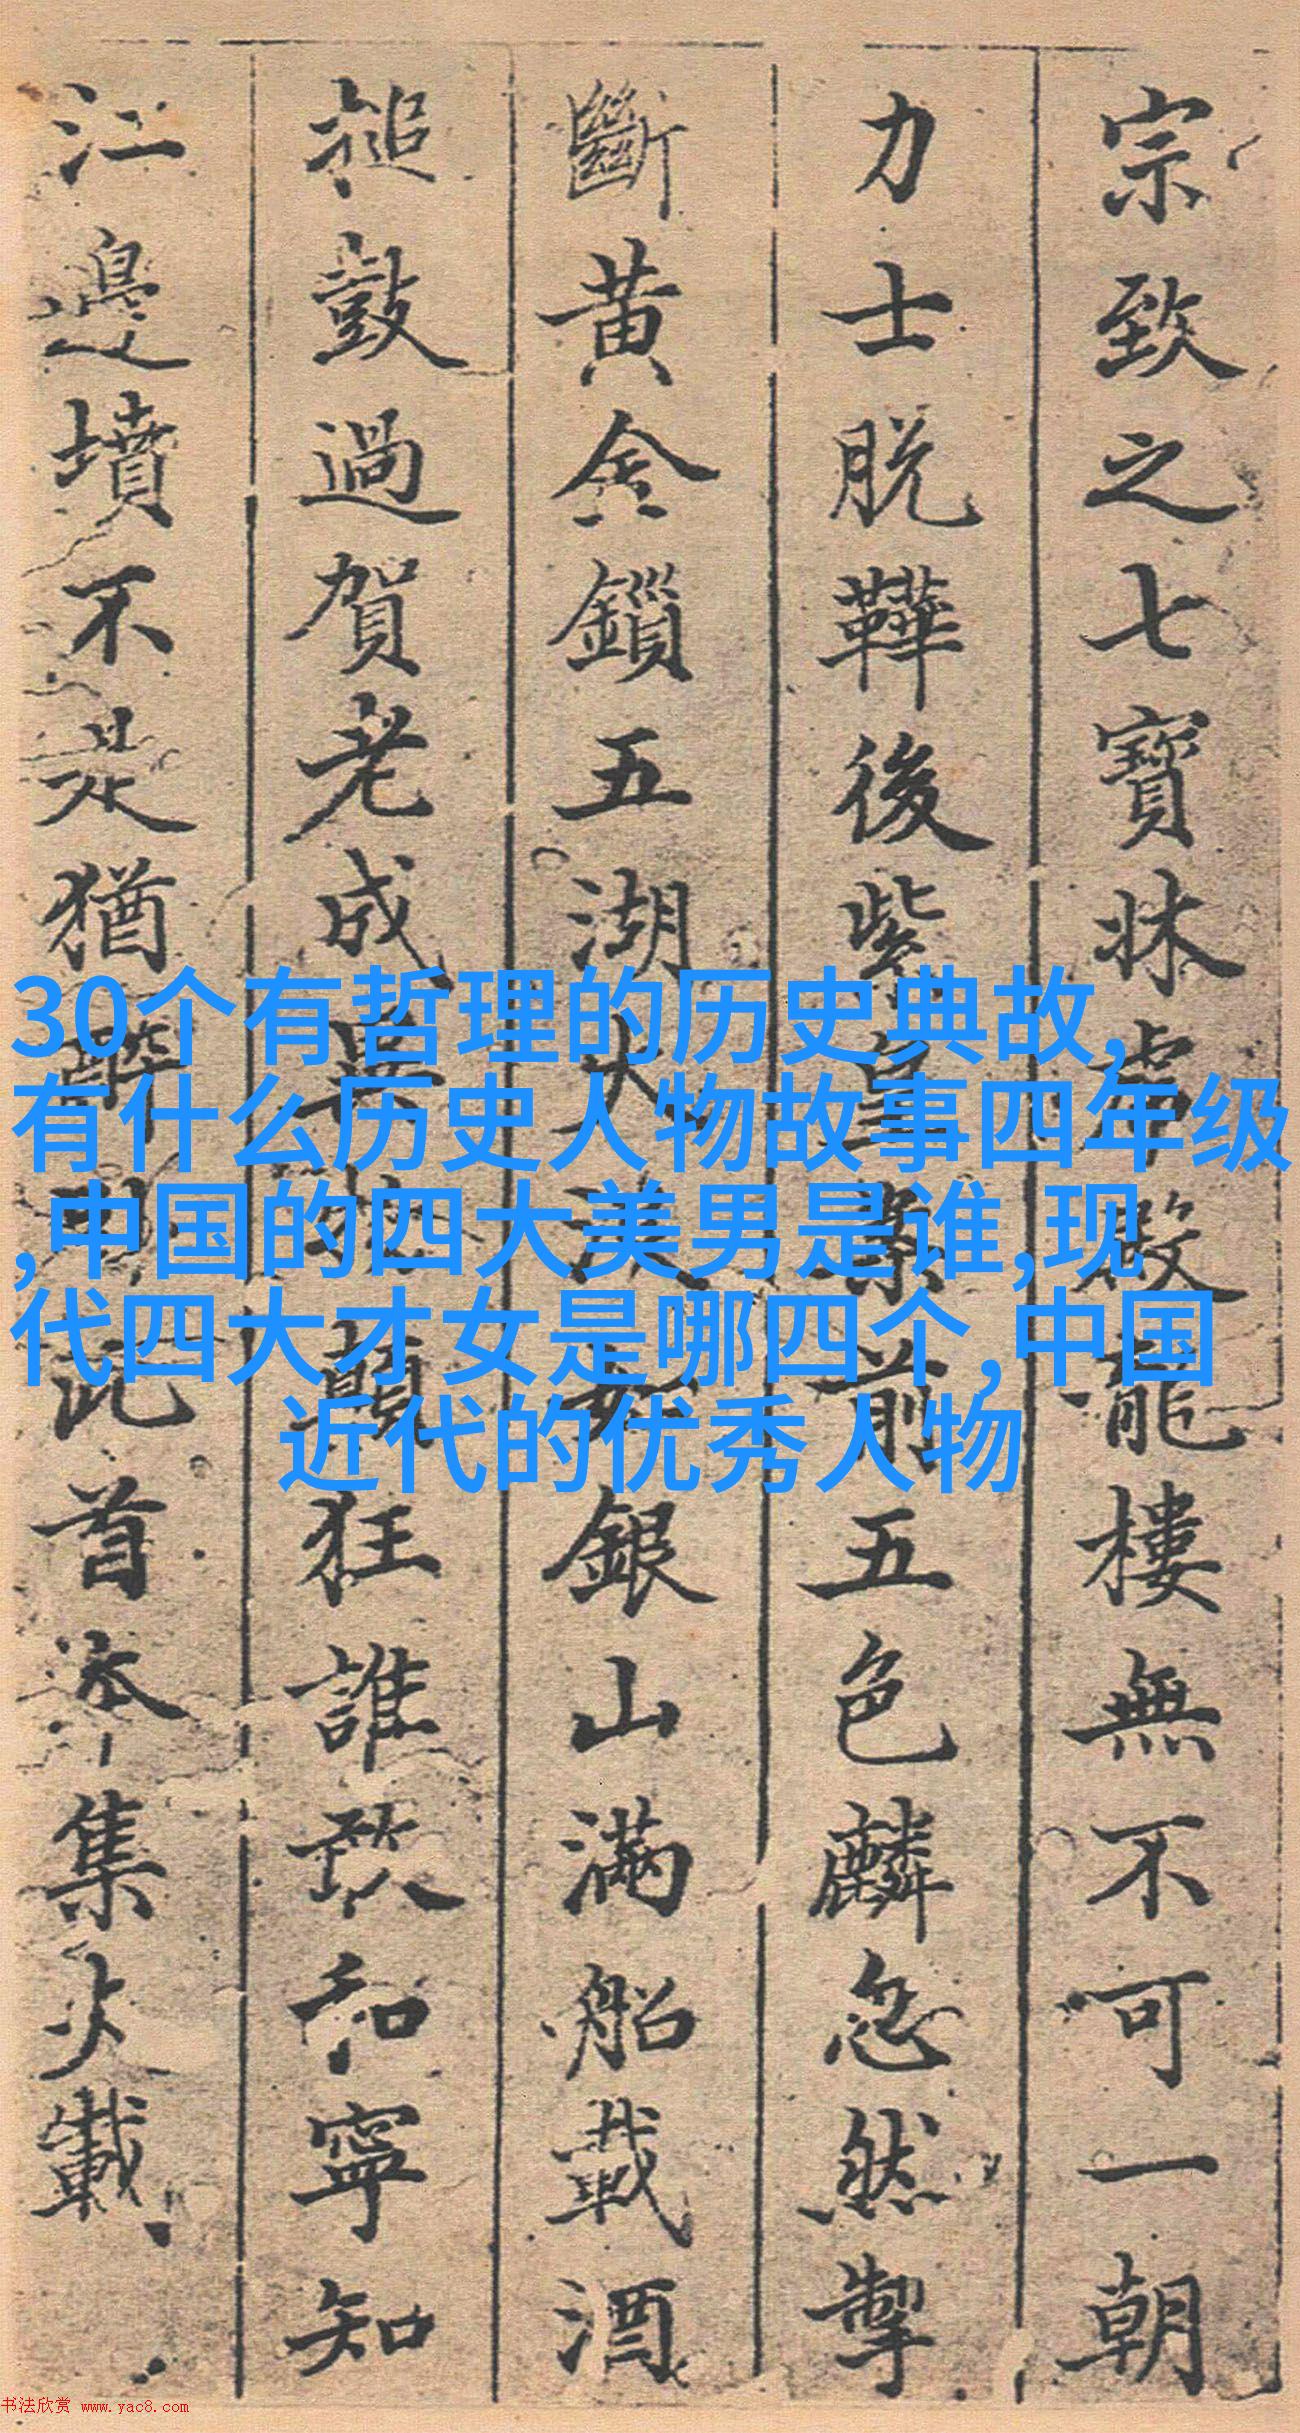 宗致之七寶牀虎殿龍樓無不可一朝
力士脱鞾後紫皇案前五色麟忽然掣
斷黃金鎖五湖大浪如銀山滿船載酒
搥鼓過賀老成異物顛狂誰敢和寧知
江邊墳不是猶醉臥此首本集少載
30个有哲理的历史典故,
有什么历史人物故事四年级
,中国的四大美男是谁,现
代四大才女是哪四个,中国
近代的优秀人物
书法欣赏 www.yac8.com